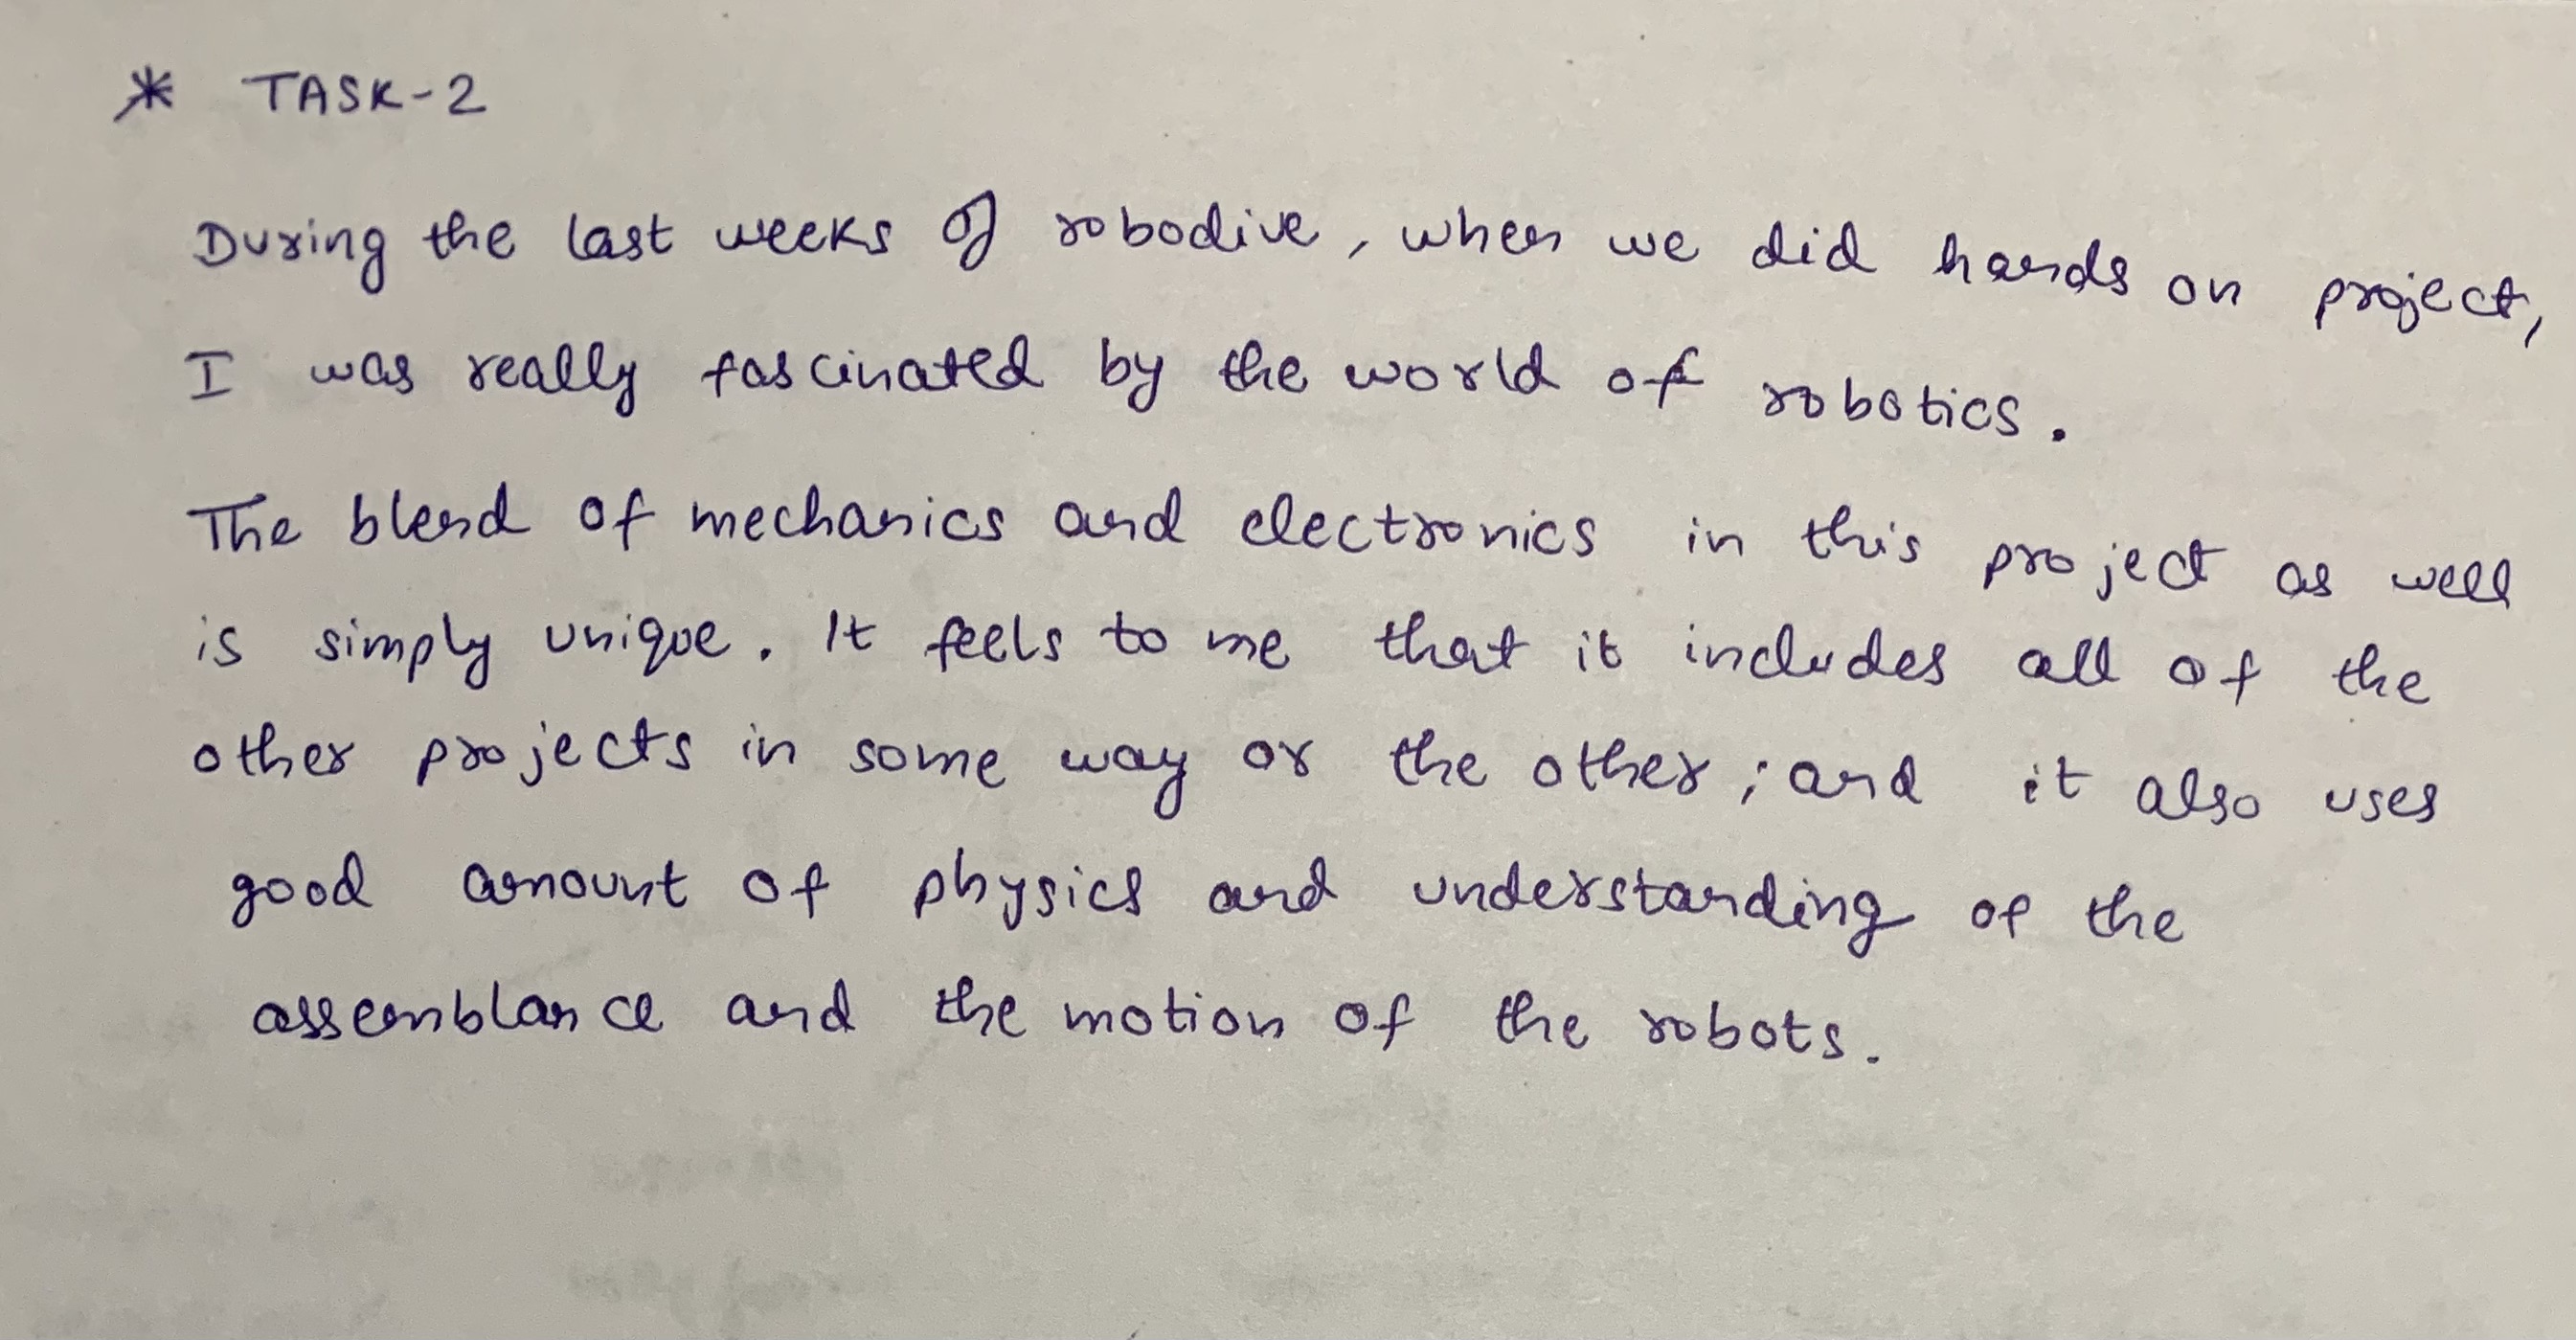 * TASK-2
During the last weeks of robodive, when we did hands on project,
I was really fascinated by the world of robotics.
The blend of mechanics and electronics in this project as well
is simply unique. It feels to me that it includes all of the
other projects in some way or the other; and it also uses
good amount of physics and understanding of the
assemblance and the motion of the robots.